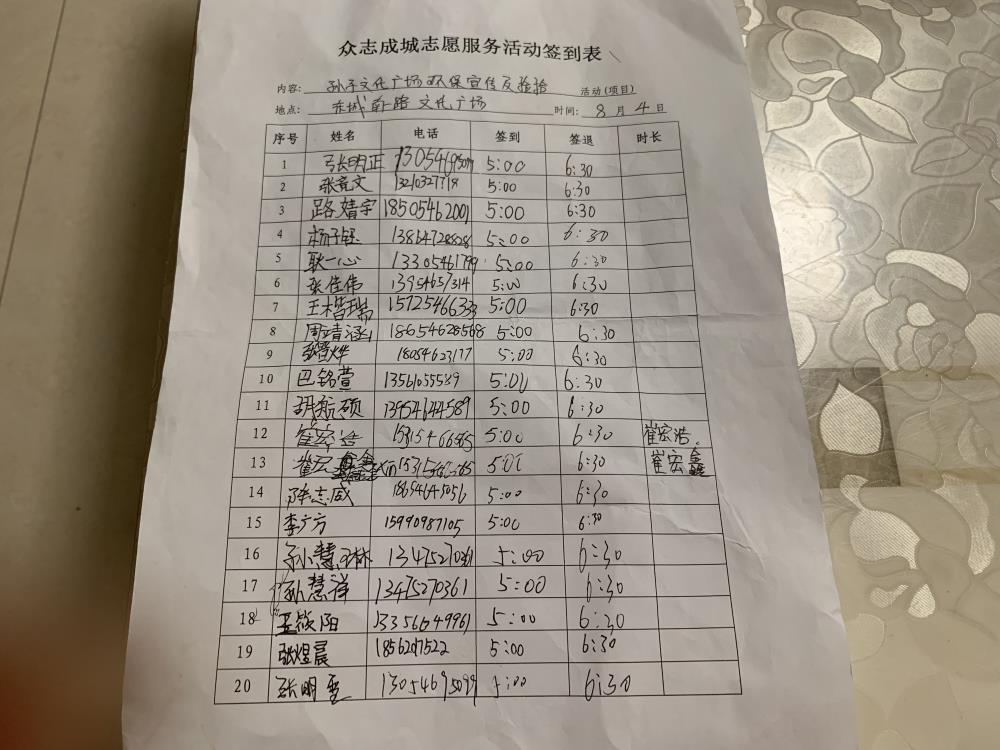 众志成城志愿服务活动签到表
内容: 孙子文化广场环保宣传及捡拾 活动(项目)
地点: 东城南路 文化广场 时间: 8 月 4 日
序号 姓名 电话 签到 签退 时长
1 张明正 5:00 6:30
2 张竞文 5:00 6:30
3 路婧宇 18505462001 5:00 6:30
4 杨子钰 13864728828 5:00 6:30
5 耿一心 13305461799 5:00 6:30
6 张佳伟 13954657314 5:00 6:30
7 王楷瑞 15725466333 5:00 6:30
8 周靖涵 18654628568 5:00 6:30
9 18054623177 5:00 6:30
10 巴铭萱 5:00 6:30
11 胡航硕 13954644589 5:00 6:30
12 崔宏浩 5:00 6:30 崔宏浩.
13 崔宏鑫 5:00 6:30 崔宏鑫
14 陈志威 18654645056 5:00 6:30
15 李方 15990987105 5:00 6:30
16 13475270361 5:00 6:30
17 孙慧祥 13475270361 5:00 6:30
18 王筱阳 13356649961 5:00 6:30
19 张煜晨 5:00 6:30
20 13054695099 5:00 6:30